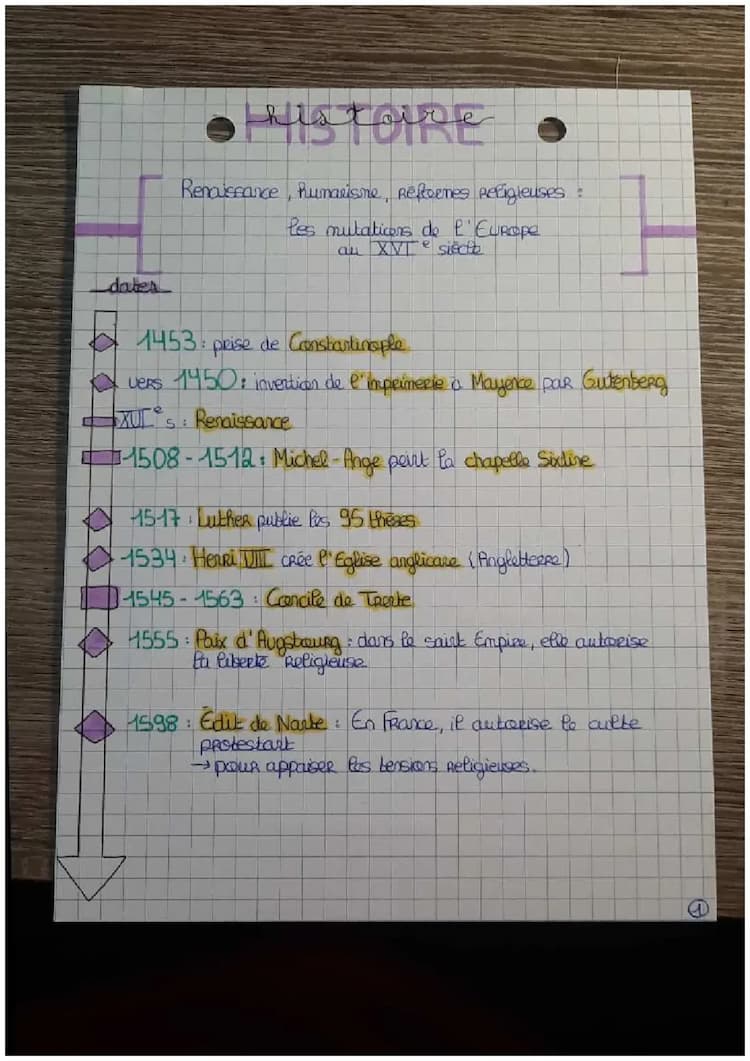 HISTOIRE
histoire
Renaissance, humanisme, réformes religieuses :
les mutations de l'Europe
au XVIe siècle
dates
1453 : prise de Constantinople
vers 1450 : invention de l'imprimerie à Mayence par Gutenberg
XVIe s : Renaissance
1508 - 1512 : Michel-Ange peint la chapelle Sixtine
1517 : Luther publie les 95 thèses
1534 : Henri VIII crée l'Eglise anglicane (Angleterre)
1545 - 1563 : Concile de Trente
1555 : Paix d'Augsbourg : dans le saint Empire, elle autorise
la liberté religieuse
1598 : Édit de Nante : En France, il autorise le culte
protestant
→ pour appaiser les tensions religieuses.
1